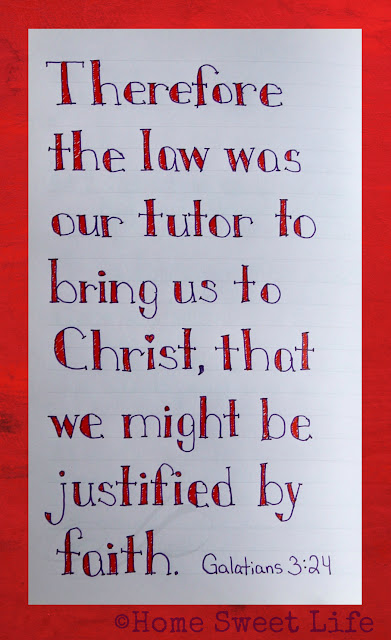 Therefore
the law was
our tutor to
bring us to
Christ, that
we might be
justified by
faith. Galatians 3:24
©Home Sweet Life